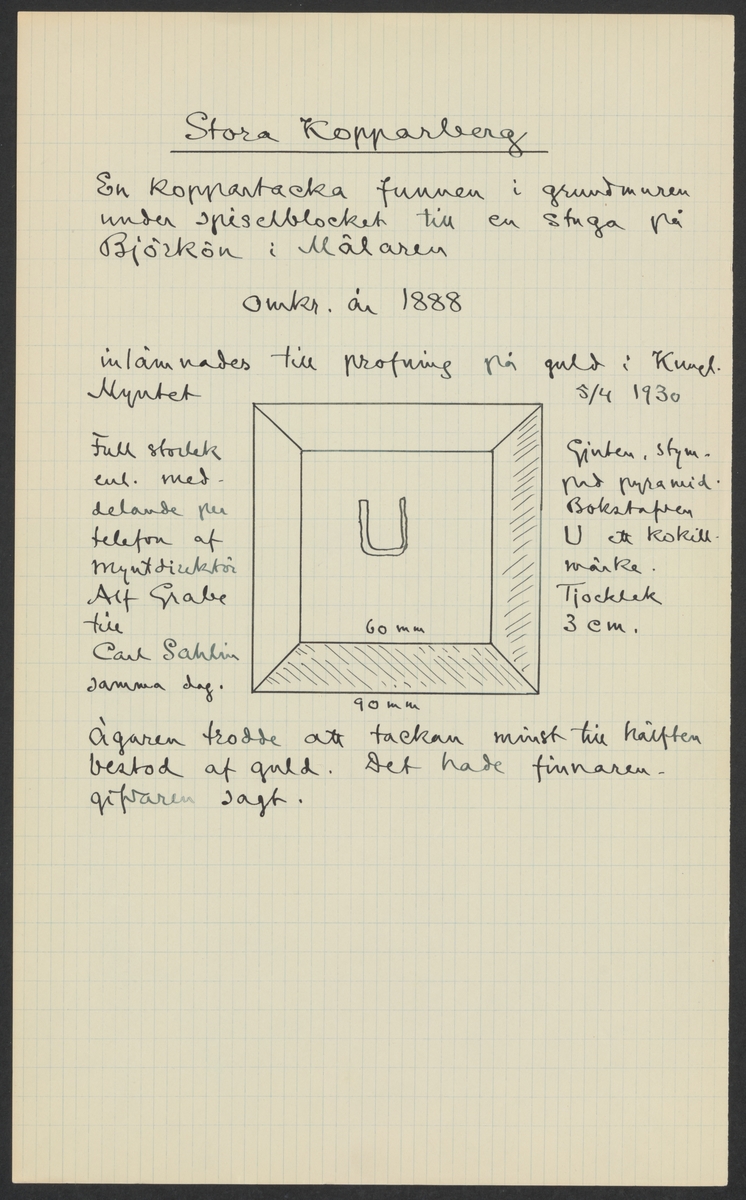 Stora Kopparberg
En koppartacka funnen i grundmuren
under spiselblocket till en stuga på
Björkön i Mälaren
omkr. år 1888
inlämnades till profning på guld i Kungl.
Myntet
5/4 1930
Full storlek
enl. med-
delande per
telefon af
Myntdirektör
Alf Grabe
till
Carl Sahlin
samma dag.
U
60 mm
90 mm
Gjuten, stym-
pad pyramid.
Bokstafven
U ett kokill-
märke.
Tjocklek
3 cm.
Ägaren trodde att tackan minst till hälften
bestod af guld. Det hade finnaren-
gifvaren sagt.